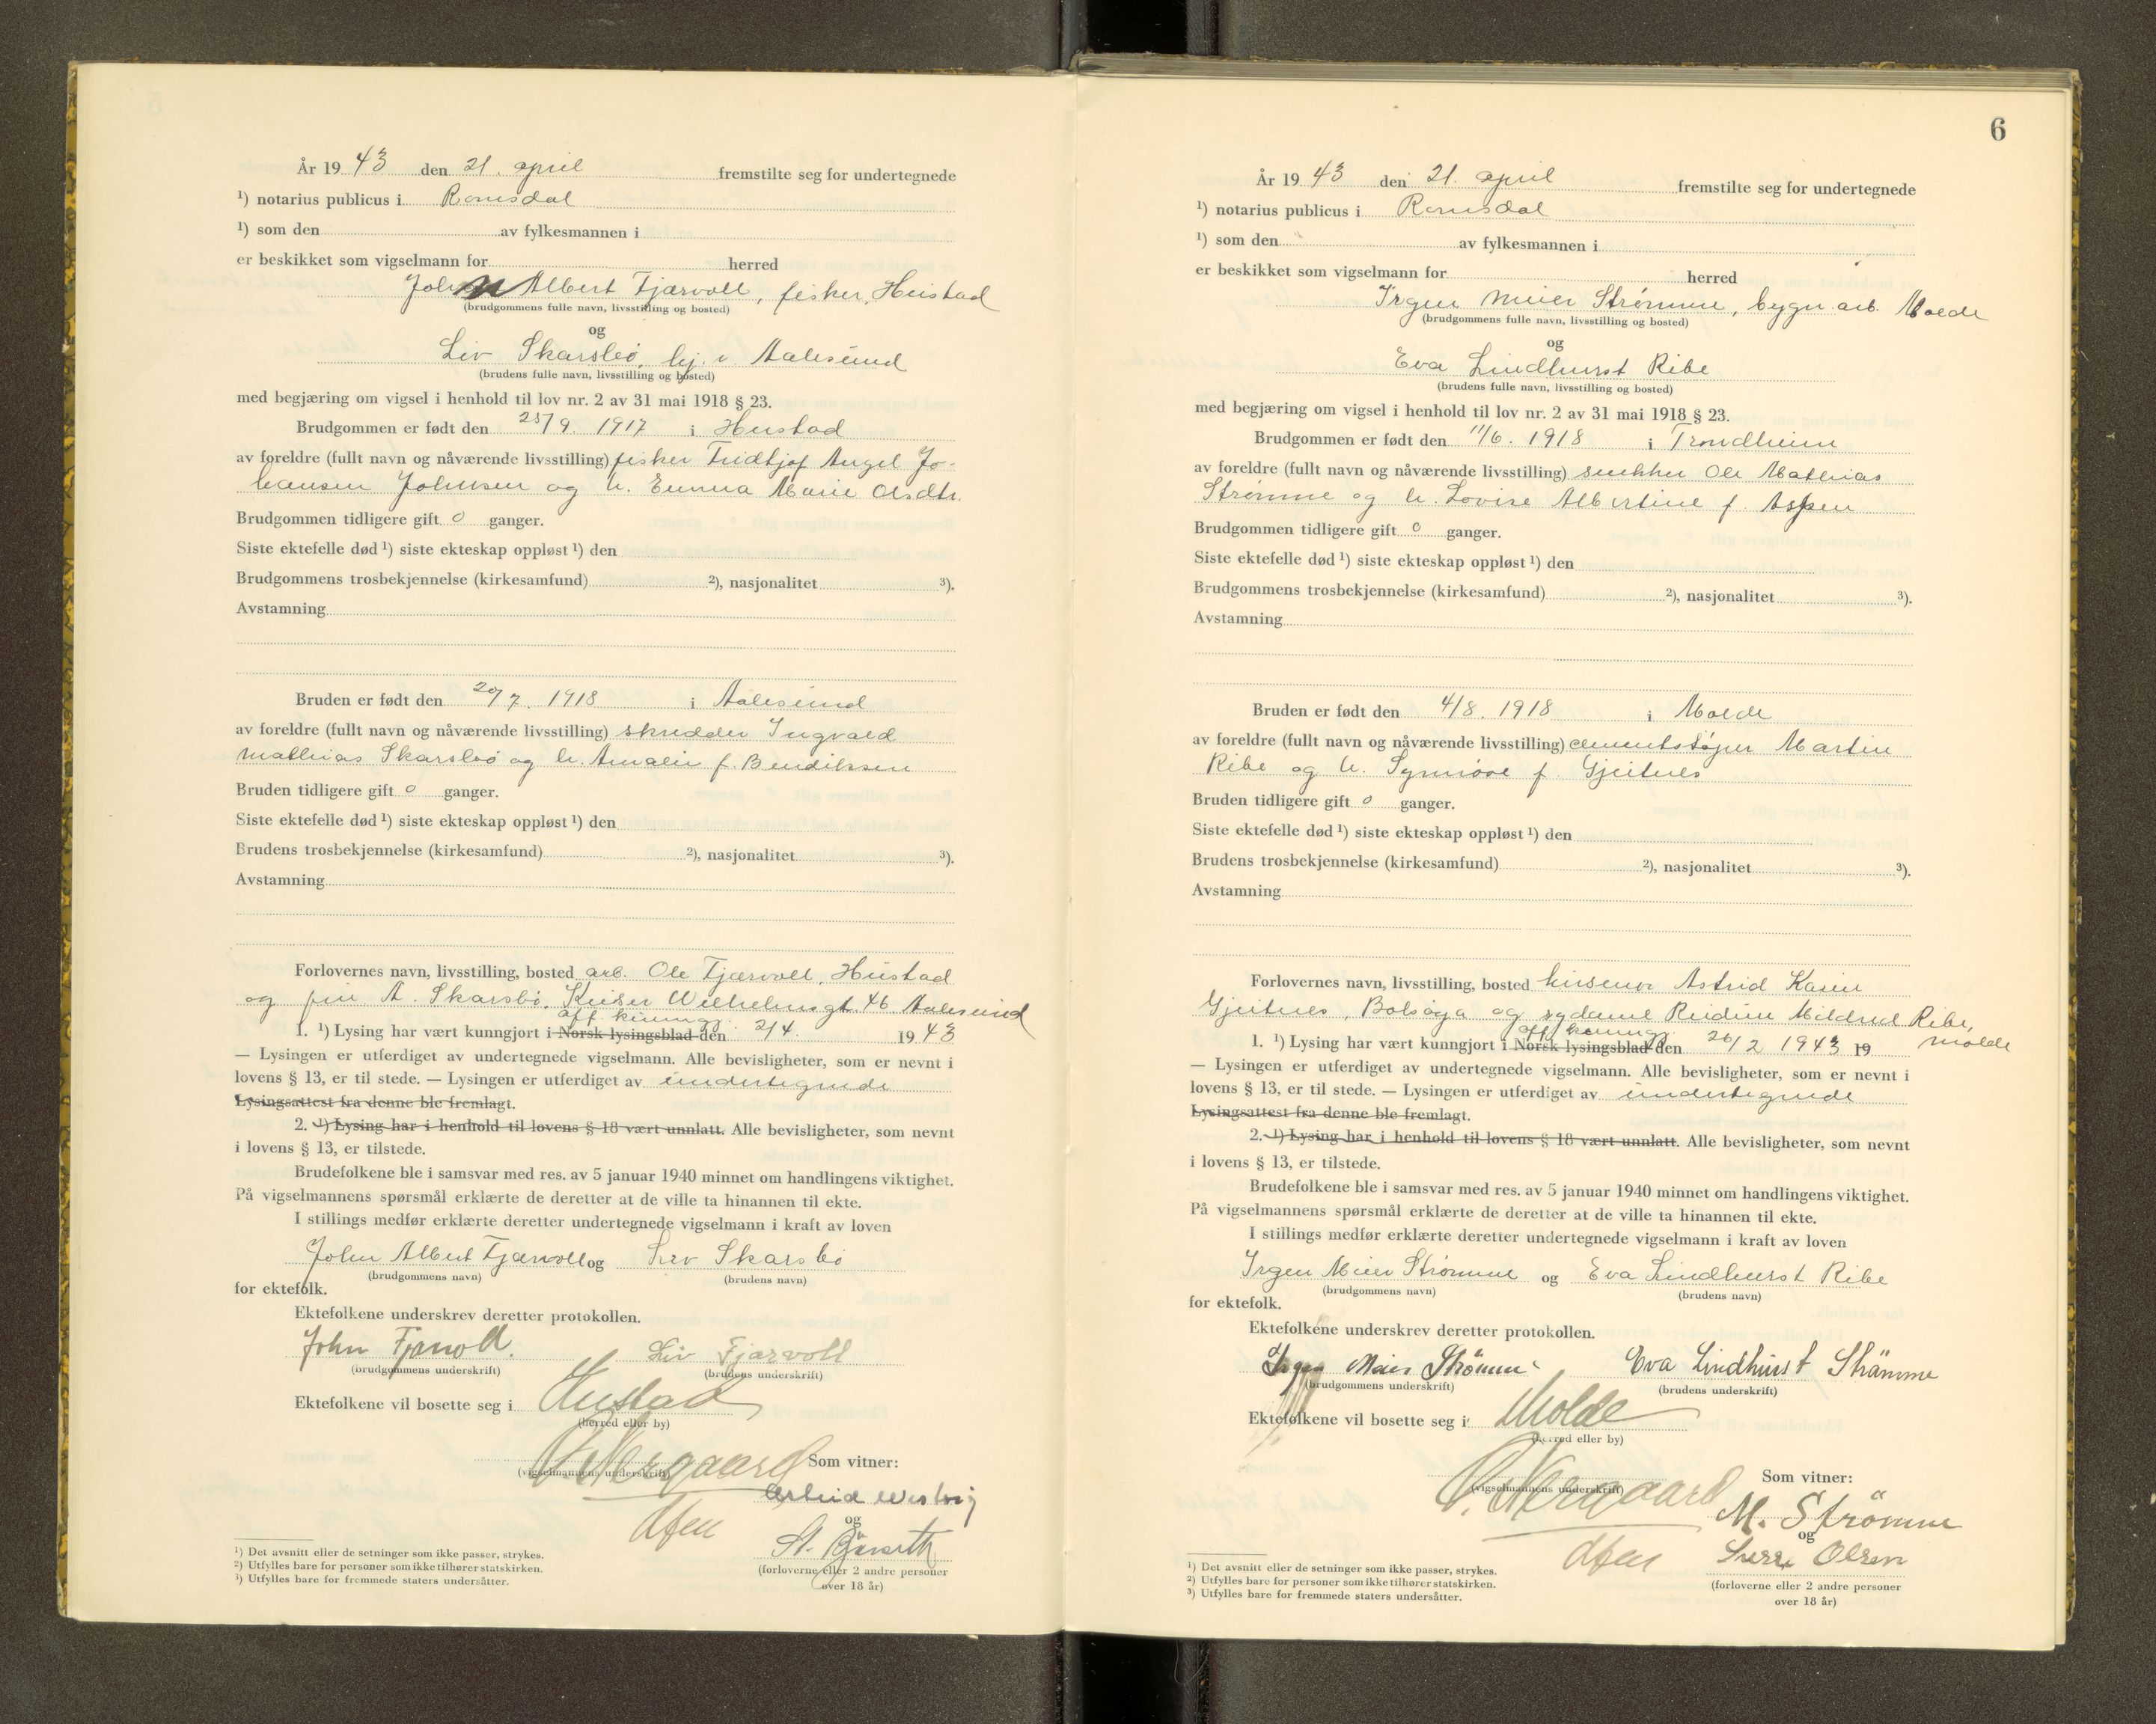 År 1943 den 21. april fremstilte seg for undertegnede
¹) notarius publicus i Romsdal
¹) som den av fylkesmannen i
er beskikket som vigselmann for herred
John Albert Fjærvoll, fisker, Hustad
(brudgommens fulle navn, livsstilling og bosted)
og
Liv Skarsbö, hj. i Aalesund
(brudens fulle navn, livsstilling og bosted)
med begjæring om vigsel i henhold til lov nr. 2 av 31 mai 1918 § 23.
Brudgommen er født den 25/9. 1917 i Hustad
av foreldre (fullt navn og nåværende livsstilling) fisker Fridtjof Angel Jo-
hansen Johnsen og h. Emma Marie Olsdtr.
Brudgommen tidligere gift 0 ganger.
Siste ektefelle død ¹) siste ekteskap oppløst ¹) den
Brudgommens trosbekjennelse (kirkesamfund) ²), nasjonalitet ³).
Avstamning
Bruden er født den 20/7. 1918 i Aalesund
av foreldre (fullt navn og nåværende livsstilling) skredder Ingvald
Mathias Skarsbö og h. Amalie f. Bendiksen
Bruden tidligere gift 0 ganger.
Siste ektefelle død ¹) siste ekteskap oppløst ¹) den
Brudens trosbekjennelse (kirkesamfund) ²), nasjonalitet ³).
Avstamning
Forlovernes navn, livsstilling, bosted arb. Ole Fjærvoll, Hustad
og fru A. Skarsbö, Keiser Wilhelmsgt 46 Aalesund
off. kunngj.
1. ¹) Lysing har vært kunngjort i Norsk lysingsblad den 2/4. 1943
— Lysingen er utferdiget av undertegnede vigselmann. Alle bevisligheter, som er nevnt i
lovens § 13, er til stede. — Lysingen er utferdiget av undertegnede
Lysingsattest fra denne ble fremlagt.
2. ¹) Lysing har i henhold til lovens § 18 vært unnlatt. Alle bevisligheter, som nevnt
i lovens § 13, er tilstede.
Brudefolkene ble i samsvar med res. av 5 januar 1940 minnet om handlingens viktighet.
På vigselmannens spørsmål erklærte de deretter at de ville ta hinannen til ekte.
I stillings medfør erklærte deretter undertegnede vigselmann i kraft av loven
John Albert Fjærvoll og Liv Skarsbö
(brudgommens navn) (brudens navn)
for ektefolk.
Ektefolkene underskrev deretter protokollen.
John Fjærvoll. Liv Fjærvoll
(brudgommens underskrift) (brudens underskrift)
Ektefolkene vil bosette seg i Hustad
(herred eller by)
Nergaard Som vitner:
(vigselmannens underskrift)
og
(forloverne eller 2 andre personer
over 18 år)
¹) Det avsnitt eller de setninger som ikke passer, strykes.
²) Utfylles bare for personer som ikke tilhører statskirken.
³) Utfylles bare for fremmede staters undersåtter.
6
År 1943 den 21. april fremstilte seg for undertegnede
¹) notarius publicus i Romsdal
¹) som den av fylkesmannen i
er beskikket som vigselmann for herred
Irgen Meier Strömme, bygn. arb. Molde
(brudgommens fulle navn, livsstilling og bosted)
og
Eva Lindhurst Ribe
(brudens fulle navn, livsstilling og bosted)
med begjæring om vigsel i henhold til lov nr. 2 av 31 mai 1918 § 23.
Brudgommen er født den 11/6. 1918 i Trondheim
av foreldre (fullt navn og nåværende livsstilling) snekker Ole Mathias
Strömme og h. Lovise Albertine f. Aspen
Brudgommen tidligere gift 0 ganger.
Siste ektefelle død ¹) siste ekteskap oppløst ¹) den
Brudgommens trosbekjennelse (kirkesamfund) ²), nasjonalitet ³).
Avstamning
Bruden er født den 4/8. 1918 i Molde
av foreldre (fullt navn og nåværende livsstilling) cementstöper Martin
Ribe og h. Synnöve f. Gjeitnes
Bruden tidligere gift 0 ganger.
Siste ektefelle død ¹) siste ekteskap oppløst ¹) den
Brudens trosbekjennelse (kirkesamfund) ²), nasjonalitet ³).
Avstamning
Forlovernes navn, livsstilling, bosted husmor Astrid Karin
Gjeitnes, Bolsöya og sydame Reidun Mildred Ribe,
Molde
off. kunngj.
1. ¹) Lysing har vært kunngjort i Norsk lysingsblad den 26/2 1943 19
— Lysingen er utferdiget av undertegnede vigselmann. Alle bevisligheter, som er nevnt i
lovens § 13, er til stede. — Lysingen er utferdiget av undertegnede
Lysingsattest fra denne ble fremlagt.
2. ¹) Lysing har i henhold til lovens § 18 vært unnlatt. Alle bevisligheter, som nevnt
i lovens § 13, er tilstede.
Brudefolkene ble i samsvar med res. av 5 januar 1940 minnet om handlingens viktighet.
På vigselmannens spørsmål erklærte de deretter at de ville ta hinannen til ekte.
I stillings medfør erklærte deretter undertegnede vigselmann i kraft av loven
Irgen Meier Strömme og Eva Lindhurst Ribe
(brudgommens navn) (brudens navn)
for ektefolk.
Ektefolkene underskrev deretter protokollen.
Irgen Meier Strömme Eva Lindhurst Strömme
(brudgommens underskrift) (brudens underskrift)
Ektefolkene vil bosette seg i Molde
(herred eller by)
Nergaard Som vitner:
(vigselmannens underskrift)
M. Strömme
og
Sverre Olsen
(forloverne eller 2 andre personer
over 18 år)
¹) Det avsnitt eller de setninger som ikke passer, strykes.
²) Utfylles bare for personer som ikke tilhører statskirken.
³) Utfylles bare for fremmede staters undersåtter.